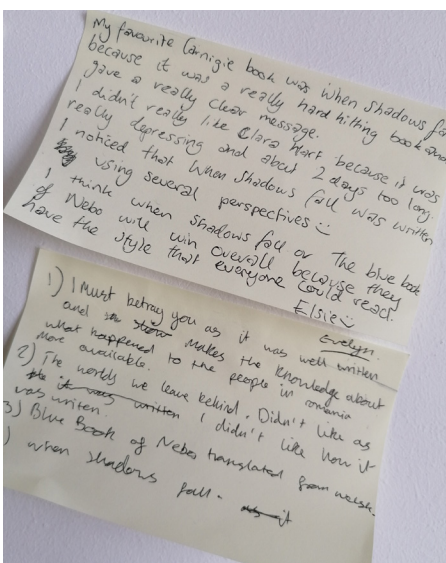 My favourite Carnigie book was when shadows fa
because it was a really hard hitting book and
gave a really clear message.
I didn't really like Clara Hart because it was
really depressing and about 2 days too long.
I noticed that When Shadows fall was written
using several perspectives
I think when shadows fall or The blue book
of Nebo will win overall because they
have the style that everyone could read.
Elsie
Evelyn.
1) I Must betray you as it was well written
and makes the knowledge about
what happened to the people in romania
more available.
2) The worlds we leave behind. Didn't like as
it was written I didn't like how it
was writen.
3) Blue Book of Nebo translated from welsh.
) when shadows fall.